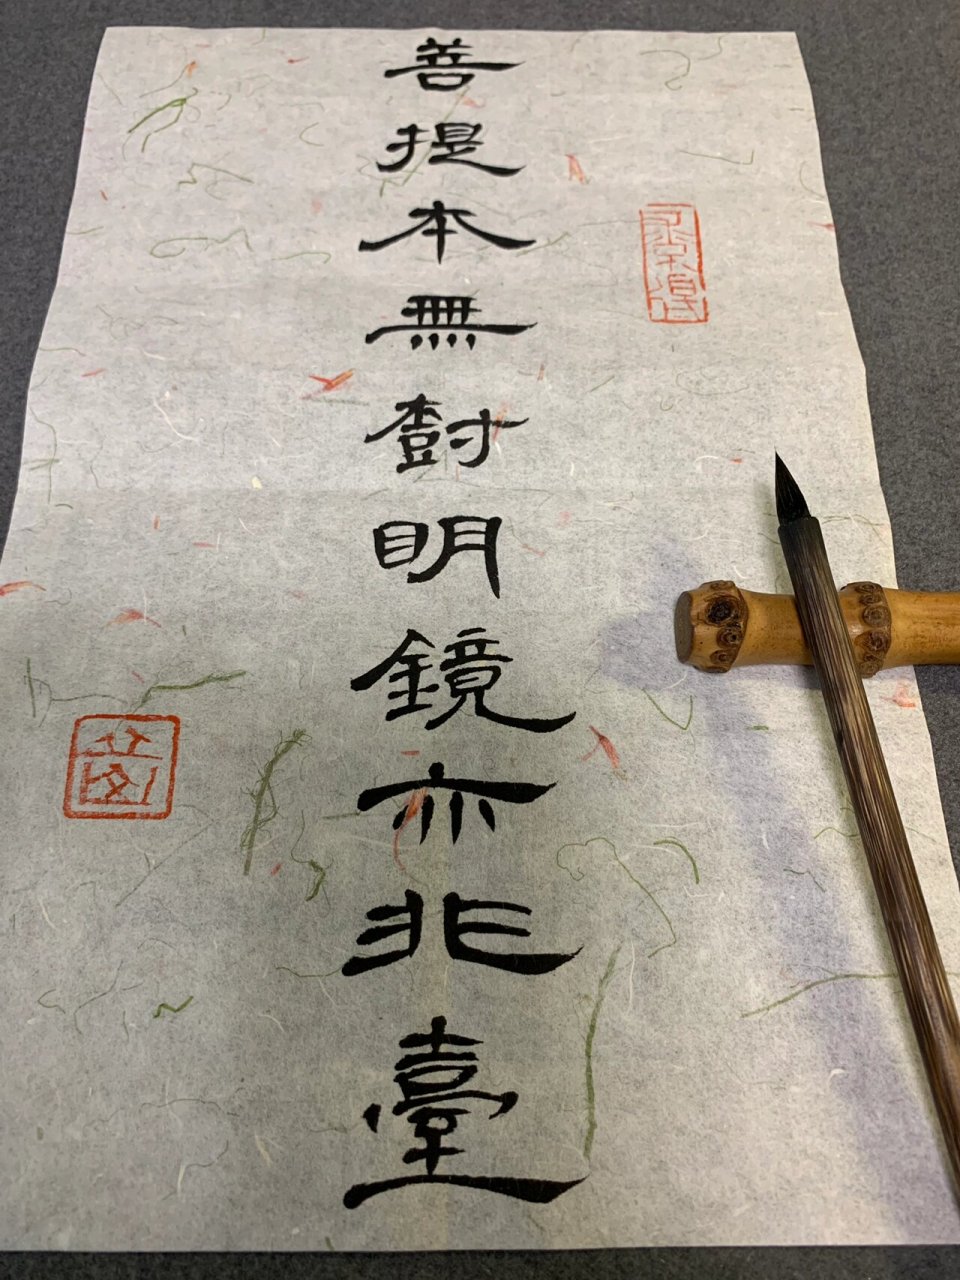 善提本無樹明鏡亦非臺